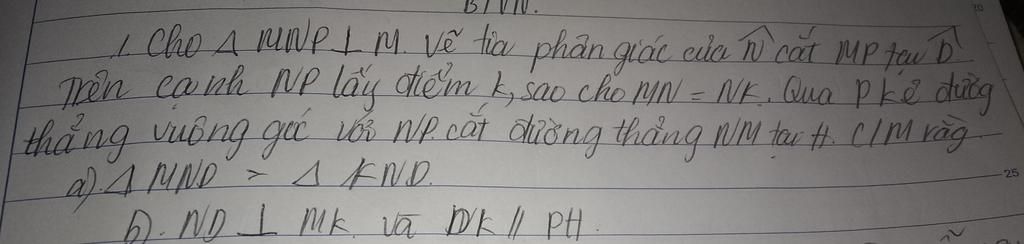 BTVN.
1. Cho Δ MNP ⊥ M. Vẽ tia phân giác của N̂ cắt MP tại D
Trên cạnh NP lấy điểm K, sao cho MN = NK. Qua P kẻ đường
thẳng vuông góc với NP cắt đường thẳng NM tại H. C/M rằg
a). Δ MND = Δ KND.
b). ND ⊥ MK và DK // PH.
25